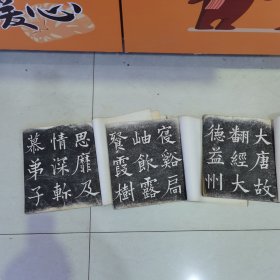 爱心
大唐故
翻經大
德益州
寑谿扃
岫飲露
餐霞樹
思靡及
情深斬
慕弟子